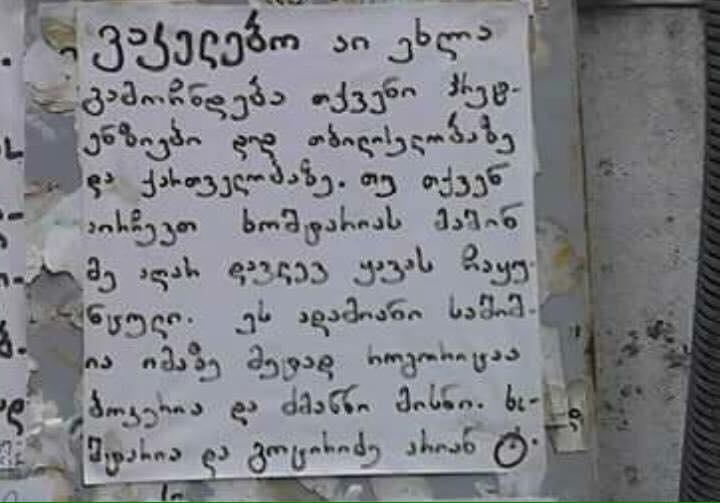 ვაკელებო აი ეხლა
გამოჩნდება თქვენი პრეტ-
ენზიები დიდ თბილისელობაზე
და ქართველობაზე. თუ თქვენ
აირჩევთ ხოშტარიას მაშინ
მე აღარ დავლევ ყავას ჩაყუ-
ნცული. ეს ადამიანი საშიშ-
ია იმაზე მეტად როგორიცაა
ბოკერია და ძმანნი მისნი. ხო-
შტარია და გოცირიძე არიან